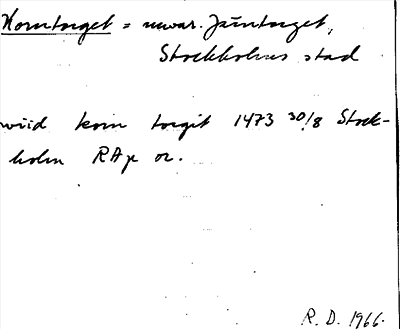 Korntorget = nuvar. Järntorget,
Stockholms stad
wiid korn torgit 1473 30/8 Stock-
holm RAp or.
R. D. 1966.